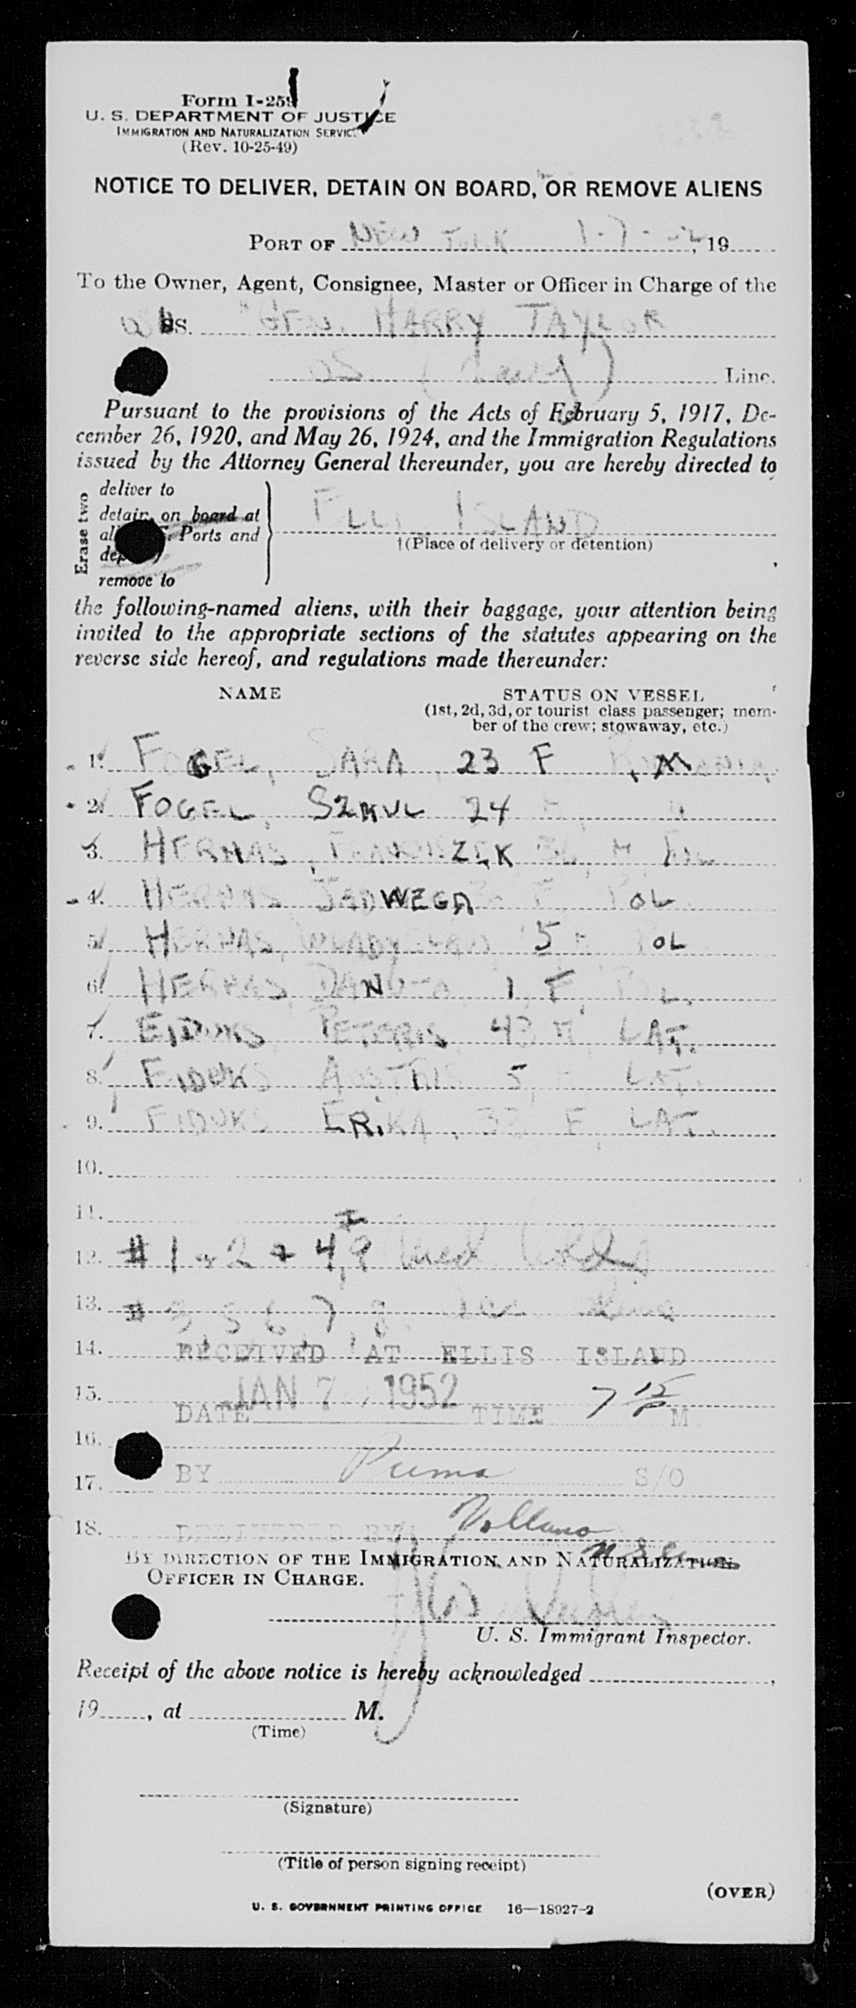 Form I-259
U. S. DEPARTMENT OF JUSTICE
IMMIGRATION AND NATURALIZATION SERVICE
(Rev. 10-25-49)
NOTICE TO DELIVER, DETAIN ON BOARD, OR REMOVE ALIENS
PORT OF NEW YORK 1-7-52, 19
To the Owner, Agent, Consignee, Master or Officer in Charge of the
SS. "GEN. HARRY TAYLOR
(Navy) Line.
Pursuant to the provisions of the Acts of February 5, 1917, De-
cember 26, 1920, and May 26, 1924, and the Immigration Regulations
issued by the Attorney General thereunder, you are hereby directed to
Erase two
deliver to
detain on board at
Ports and
remove to
ISLAND
(Place of delivery or detention)
the following-named aliens, with their baggage, your attention being
invited to the appropriate sections of the statutes appearing on the
reverse side hereof, and regulations made thereunder:
NAME STATUS ON VESSEL
(1st, 2d, 3d, or tourist class passenger; mem-
ber of the crew; stowaway, etc.)
1. FOGEL, SARA 23 F
2. FOGEL, SZMUL 24
3. HERMAS, M
4. HERMAS JADWEGA F, POL
5. HERMAS, WLADYSLAW 5 M POL
6. HERMAS, DANUTA 1, F, POL.
7. EIDUKS PETERIS 43 M, LAT.
8. EIDUKS 5, LAT.
9. EIDUKS ERIKA, 33 F, LAT.
10.
11.
12. # 1 + 2 + 4, 9 Med Hold
13. # 3 5 6 7 8
14. RECEIVED AT ELLIS ISLAND
15. DATE JAN 7 1952 TIME 7 15 P M
16.
17. BY Puma S/O
18. DELIVERED BY Vollano
BY DIRECTION OF THE IMMIGRATION AND NATURALIZATION
OFFICER IN CHARGE.
U. S. Immigrant Inspector.
Receipt of the above notice is hereby acknowledged ,
19 , at M.
(Time)
(Signature)
(Title of person signing receipt)
(OVER)
U. S. GOVERNMENT PRINTING OFFICE 16—18927-2